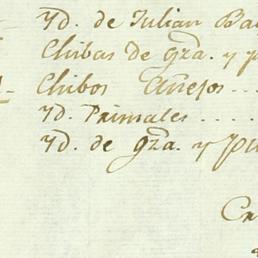 Yd. de Julian Ba
Chibas de gra. y p
Chibos Añejos ...
Yd. Primales ....
Yd. de gra. y pu
Cr